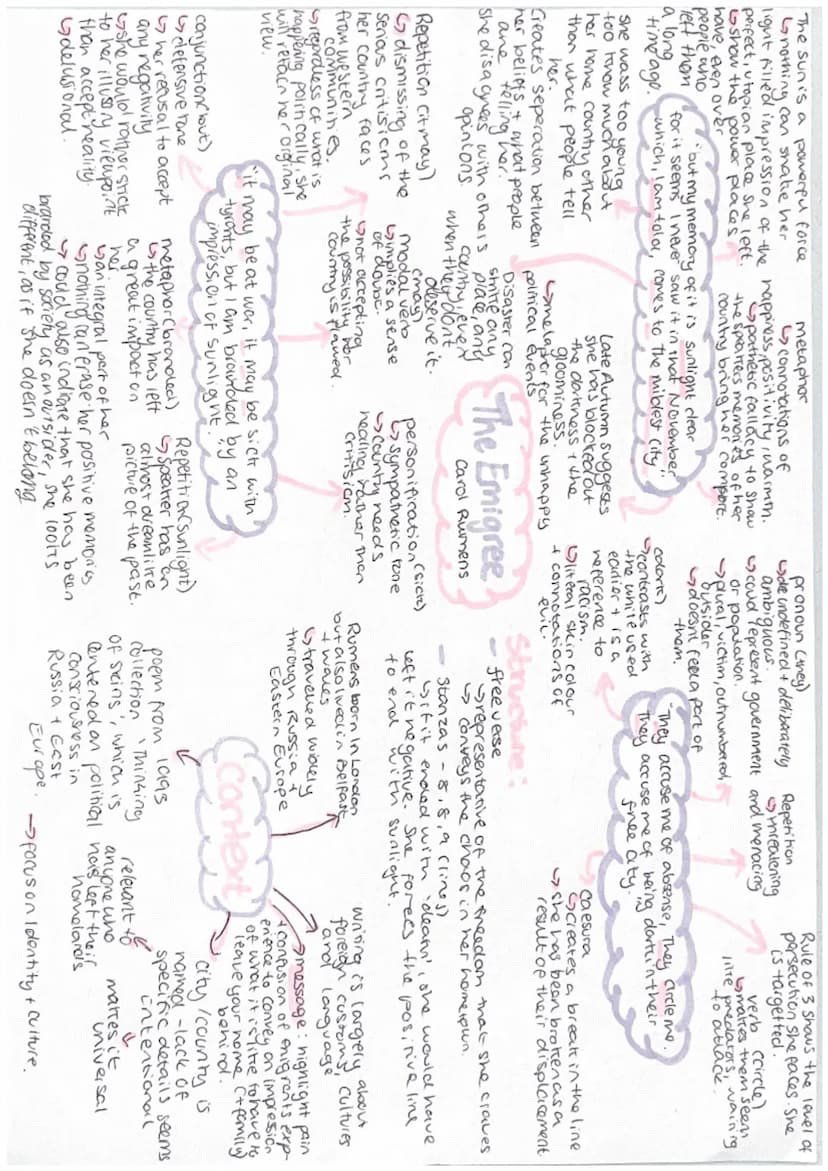 The sun is a powerful force
↳ nothing can shake her
light filled impression of the
perfect, utopian place she left.
↳ show the power places
have, even over
people who
left them
a long
time ago.
metaphor
↳ connotations of
happiness, positivity, warmth.
↳ pathetic fallacy to show
the speakers memories of her
country bring her comfort.
"but my memory of it is sunlight clear
for it seems I never saw it in that November
which, I am told, comes to the mildest city."
she was too young
too know much about
her home country other
than what people tell
her.
Creates seperation between
her beliefs + what people
are telling her.
she disagrees with others
opinions
Late Autumn suggests
she has blocked out
the darkness + the
gloominess.
↳ metaphor for the unhappy
political events
Disaster can
strike any
place and
country, even
when they don't
deserve it.
Repetition (it may)
↳ dismissing of the
serious critisisms
her country faces
from western
communities.
↳ regardless of what is
happening politically, she
will retain her original
view.
modal verb
(may)
↳ implies a sense
of doubt.
↳ not accepting
the possibility her
country is flawed.
personification (sick)
↳ sympathetic tone
↳ country needs
healing rather than
critisism.
"it may be at war, it may be sick with
tyrants, but I am branded by an
impression of sunlight."
conjunction (but)
↳ defensive tone
↳ her refusal to accept
any negativity
↳ she would rather stick
to her illusory viewpoint
than accept reality.
↳ delusional.
metaphor (branded)
↳ the country has left
a great impact on
her.
↳ an integral part of her
↳ nothing can erase her positive memories
↳ could also indicate that she has been
branded by society as an outsider, she looks
different, as if she doesn't belong
Repetition (sunlight)
↳ speaker has an
almost dreamlike
picture of the past.
The Emigree
Carol Rumens
pronoun (they)
↳ undefined + deliberately
ambiguous.
↳ could represent government
or population.
↳ plural, victim, outnumbered
outsider
↳ doesn't feel a part of
them.
Repetition
↳ threatening
and menacing
Rule of 3 shows the level of
persecution she faces. She
is targetted.
verb (circle)
↳ makes them seem
like predators, waiting
to attack.
"They accuse me of absense, They circle me.
They accuse me of being dark in their
free city."
(dark)
↳ contrasts with
the white used
earlier + is a
reference to
racism.
↳ literal skin colour
+ connotations of
evil.
caesura
↳ creates a break in the line
↳ she has been broken as a
result of their displacement
Structure:
- free verse
↳ representative of the freedom that she craves
↳ conveys the chaos in her hometown.
- Stanzas - 8, 8, 9 (lines)
↳ if it ended with 'death', she would have
left it negative. She forces the positive line
to end with sunlight.
Context
Rumens born in London
but also lived in Belfast
+ Wales
↳ travelled widely
through Russia +
Eastern Europe
Writing is largely about
foreign customs, cultures
and language
→ message: highlight pain
+ confusion of emigrants exp-
erience to convey an impression
of what it is like to have to
leave your home (+ family)
behind.
city/country is
not named - lack of
specific details seems
intentional
↳ makes it
universal
↳ relevant to
anyone who
has left their
homelands
poem from 1993
collection 'Thinking
of Skins', which is
centered on political
consciousness in
Russia + East
Europe.
→ focus on identity + culture.